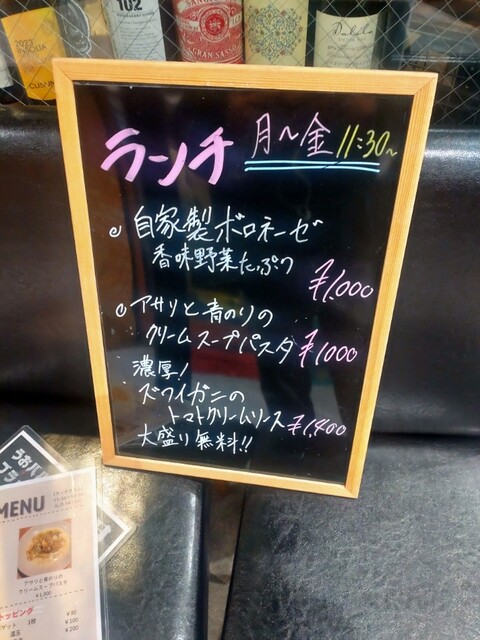 102
GRAN SASSO
ランチ 月〜金 11:30〜
自家製ボロネーゼ
香味野菜たっぷり
¥1,000
アサリと青のりの
クリームスープパスタ ¥1000
濃厚!
ズワイガニの
トマトクリームソース ¥1,400
大盛り無料!!
MENU
アサリと青のりの
クリームスープパスタ
¥1,000
トッピング
¥100
¥200